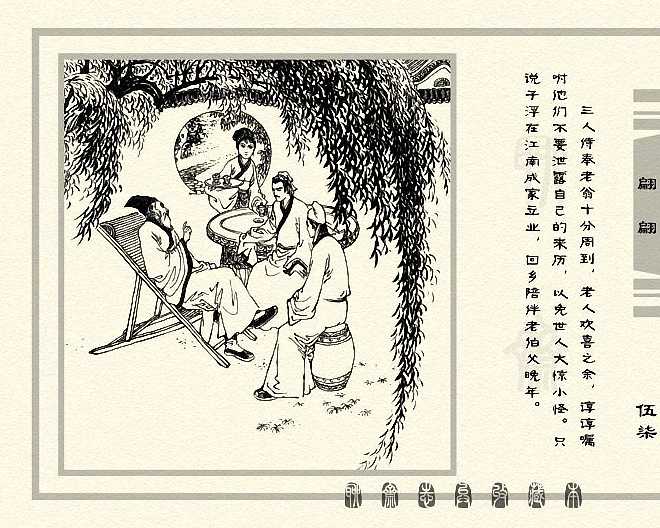 翩翩
伍柒
三人侍奉老翁十分周到，老人欢喜之余，谆谆嘱
咐他们不要泄露自己的来历，以免世人大惊小怪。只
说子浮在江南成家立业，回乡陪伴老伯父晚年。